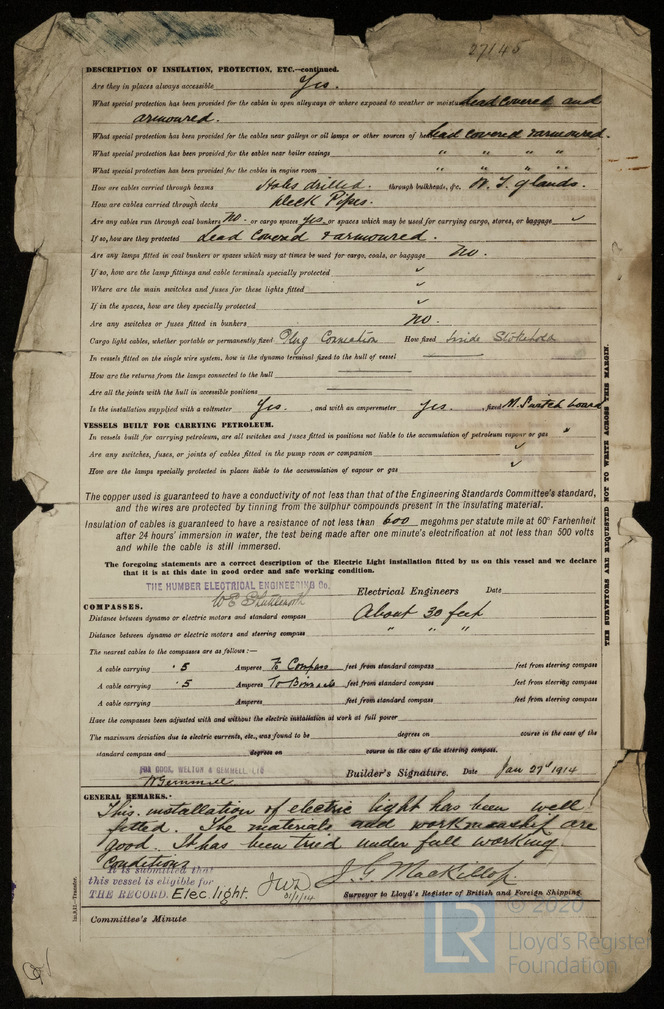 27145
DESCRIPTION OF INSULATION, PROTECTION, ETC.—continued.
Are they in places always accessible Yes.
What special protection has been provided for the cables in open alleyways or where exposed to weather or moisture Lead covered and
armoured.
What special protection has been provided for the cables near galleys or oil lamps or other sources of heat Lead covered & armoured.
What special protection has been provided for the cables near boiler casings " " " "
What special protection has been provided for the cables in engine room " " " "
How are cables carried through beams Holes drilled. through bulkheads, &c. W. T. glands.
How are cables carried through decks Deck Pipes.
Are any cables run through coal bunkers No. or cargo spaces Yes. or spaces which may be used for carrying cargo, stores, or baggage ✓
If so, how are they protected Lead Covered & armoured.
Are any lamps fitted in coal bunkers or spaces which may at times be used for cargo, coals, or baggage No.
If so, how are the lamp fittings and cable terminals specially protected ✓
Where are the main switches and fuses for these lights fitted ✓
If in the spaces, how are they specially protected ✓
Are any switches or fuses fitted in bunkers No.
Cargo light cables, whether portable or permanently fixed Plug Connection How fixed Inside Stokehold
In vessels fitted on the single wire system, how is the dynamo terminal fixed to the hull of vessel
How are the returns from the lamps connected to the hull
Are all the joints with the hull in accessible positions
Is the installation supplied with a voltmeter Yes. , and with an amperemeter Yes. , fixed M. Switch board
VESSELS BUILT FOR CARRYING PETROLEUM.
In vessels built for carrying petroleum, are all switches and fuses fitted in positions not liable to the accumulation of petroleum vapour or gas "
Are any switches, fuses, or joints of cables fitted in the pump room or companion ✓
How are the lamps specially protected in places liable to the accumulation of vapour or gas ✓
The copper used is guaranteed to have a conductivity of not less than that of the Engineering Standards Committee's standard,
and the wires are protected by tinning from the sulphur compounds present in the insulating material.
Insulation of cables is guaranteed to have a resistance of not less than 600 megohms per statute mile at 60° Farhenheit
after 24 hours' immersion in water, the test being made after one minute's electrification at not less than 500 volts
and while the cable is still immersed.
The foregoing statements are a correct description of the Electric Light installation fitted by us on this vessel and we declare
that it is at this date in good order and safe working condition.
THE HUMBER ELECTRICAL ENGINEERING Co.
W E Shuttleworth Electrical Engineers Date
COMPASSES.
Distance between dynamo or electric motors and standard compass About 30 feet
Distance between dynamo or electric motors and steering compass " " "
The nearest cables to the compasses are as follows:—
A cable carrying .5 Amperes To Compass feet from standard compass feet from steering compass
A cable carrying .5 Amperes To Binnacle feet from standard compass feet from steering compass
A cable carrying Amperes feet from standard compass feet from steering compass
Have the compasses been adjusted with and without the electric installation at work at full power
The maximum deviation due to electric currents, etc., was found to be degrees on course in the case of the
standard compass and degrees on course in the case of the steering compass.
FOR COOK, WELTON & GEMMELL, LTD
W Gemmell Builder's Signature. Date Jan 27th 1914
GENERAL REMARKS.
This installation of electric light has been well
fitted. The materials and workmanship are
good. It has been tried under full working
conditions
It is submitted that
this vessel is eligible for
THE RECORD. Elec. light. JWD 31/1/14
J. G. Mackillop.
Surveyor to Lloyd's Register of British and Foreign Shipping.
Committee's Minute
THE SURVEYORS ARE REQUESTED NOT TO WRITE ACROSS THIS MARGIN.
LR © 2020
Lloyd's Register
Foundation